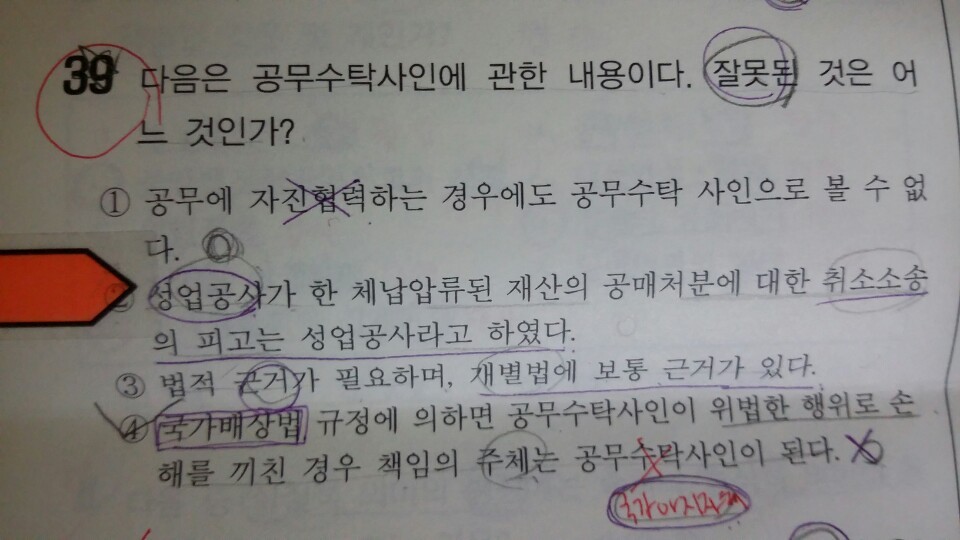 39 다음은 공무수탁사인에 관한 내용이다. 잘못된 것은 어
느 것인가?
① 공무에 자진협력하는 경우에도 공무수탁 사인으로 볼 수 없
다.
② 성업공사가 한 체납압류된 재산의 공매처분에 대한 취소소송
의 피고는 성업공사라고 하였다.
③ 법적 근거가 필요하며, 개별법에 보통 근거가 있다.
④ 국가배상법 규정에 의하면 공무수탁사인이 위법한 행위로 손
해를 끼친 경우 책임의 주체는 공무수탁사인이 된다.